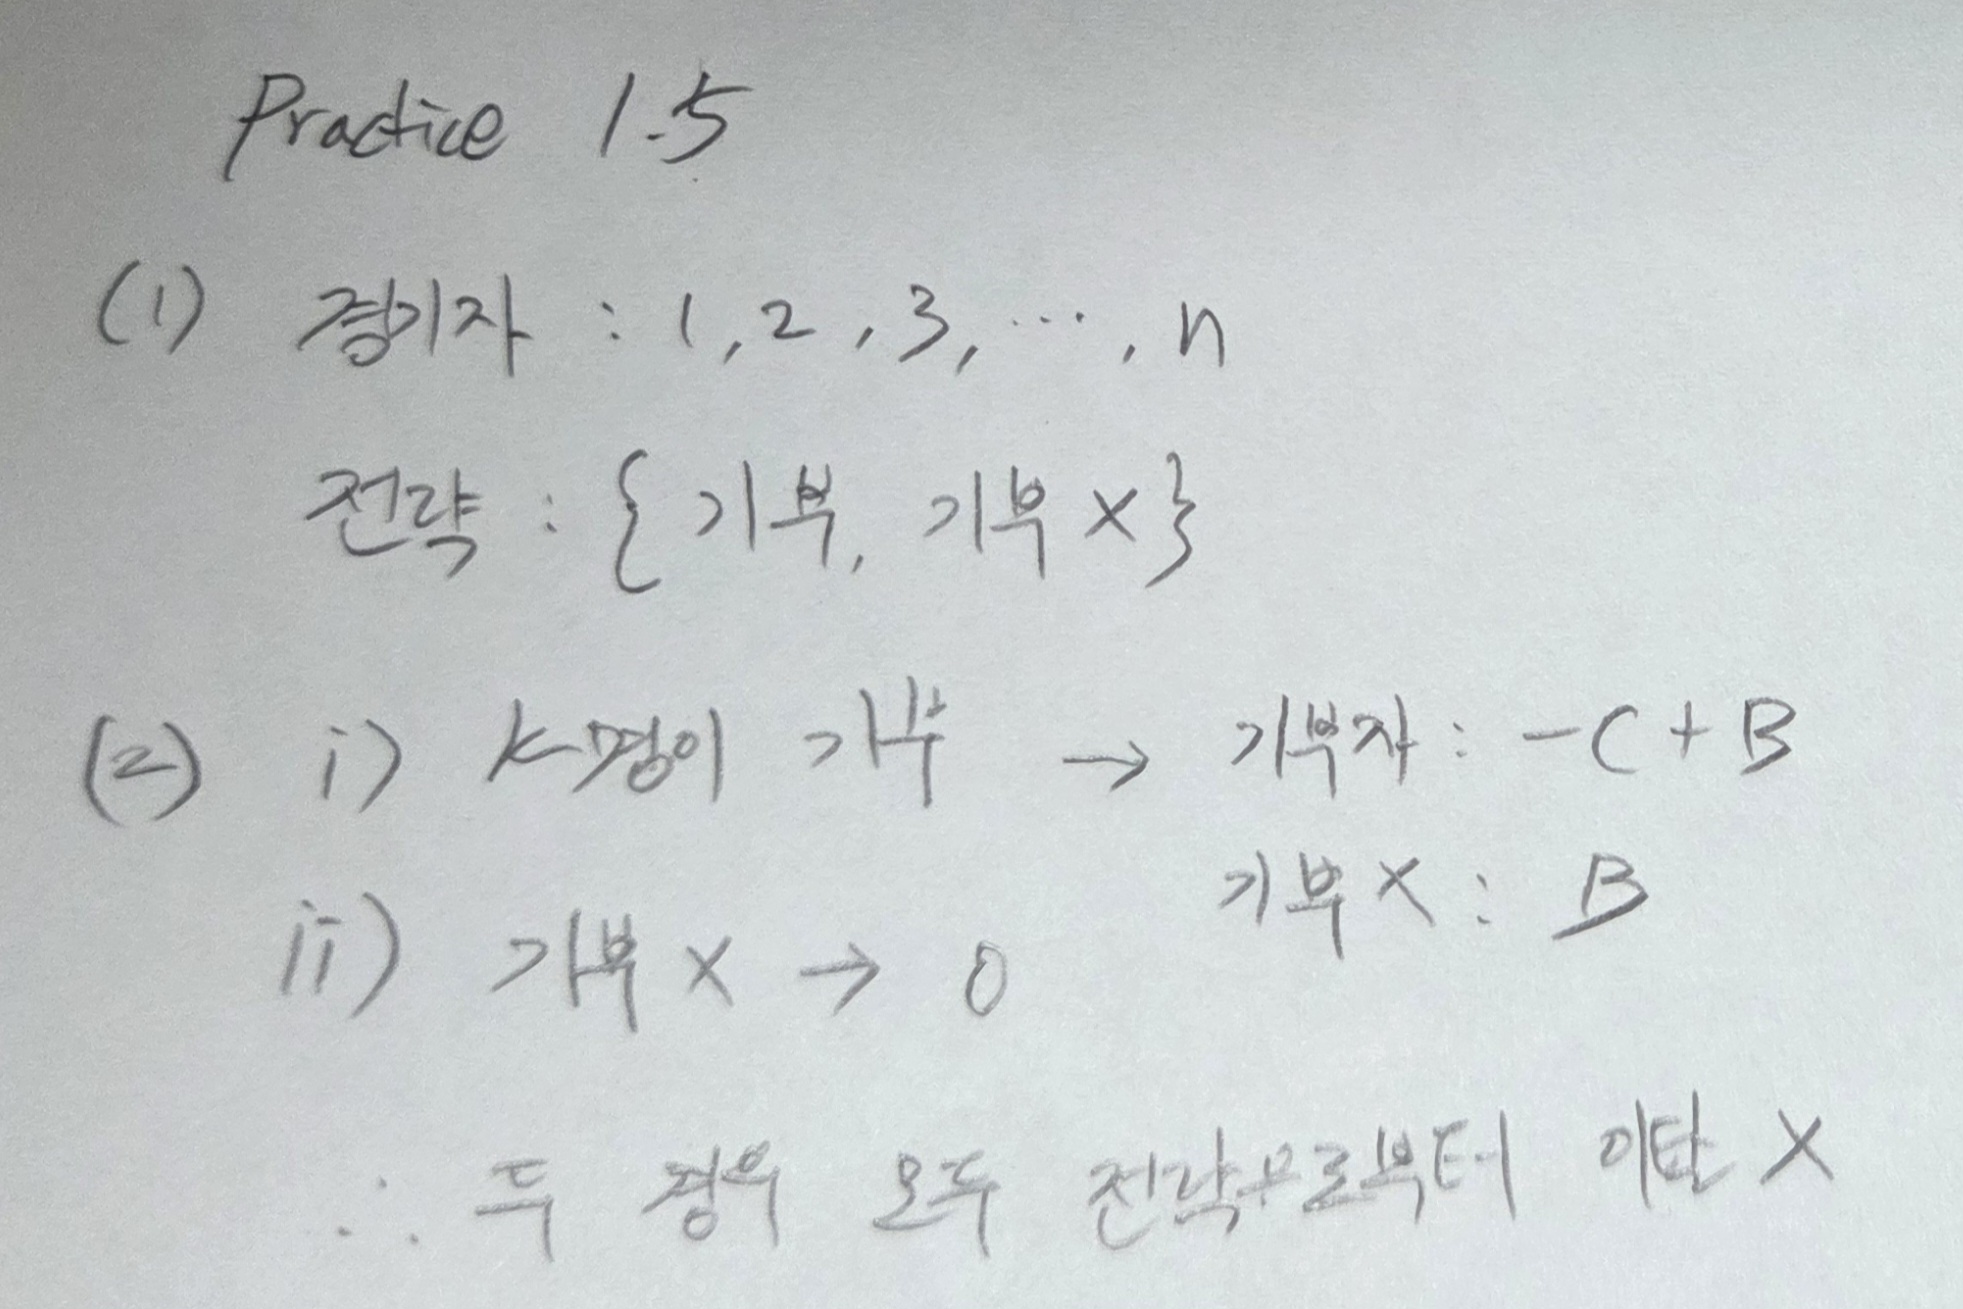 Practice 1.5
(1) 경기자 : 1, 2, 3, ..., n
전략 : {기부, 기부 X}
(2) i) k명이 기부 → 기부자 : -C + B
기부 X : B
ii) 기부 X → 0
∴ 두 경우 모두 전략으로부터 이탈 X